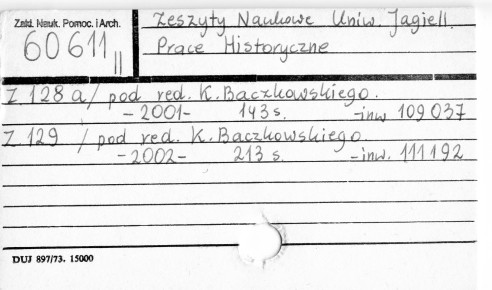 Zakł. Nauk. Pomoc. i Arch.
60611 II
Zeszyty Naukowe Uniw. Jagiell.
Prace Historyczne
Z 128 a/ pod red. K. Baczkowskiego.
-2001- 143 s. -inw 109 037
Z 129 / pod red. K. Baczkowskiego.
-2002- 213 s. -inw. 111 192
DUJ 897/73. 15000